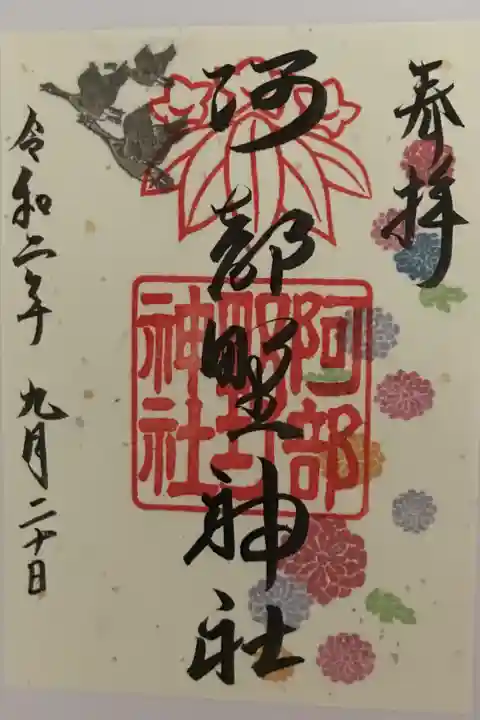 奉拝
阿部野神社
阿部
野
神社
令和二年 九月二十日